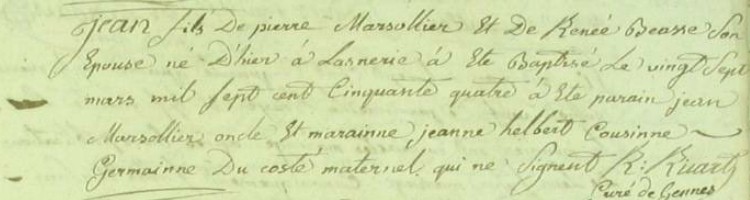 jean fils De pierre Marsollier Et De Renée Beasse Son
Epouse né D'hier á Lasnerie á Ete Baptisé Le vingt Sept
mars mil sept cent Cinquante quatre á Ete parain jean
Marsollier oncle Et marainne jeanne helbert Cousinne
Germainne Du costé maternel qui ne Signent R: Ruart
Curé de Gennes